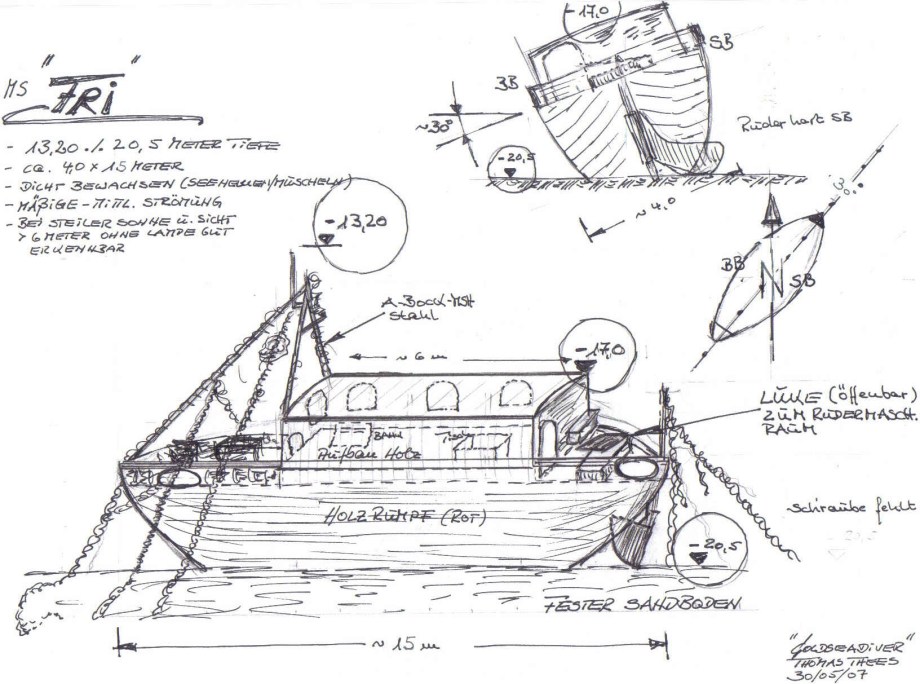 MS "FRI"
- 13,20 ./. 20,5 METER TIEFE
- CA. 40 x 15 METER
- DICHT BEWACHSEN (SEENELKEN/MUSCHELN)
- MÄßIGE - MITTL. STRÖMUNG
- BEI STEILER SONNE U. SICHT
> 6 METER OHNE LAMPE GUT
ERKENNBAR
-17,0
SB
BB
~30°
-20,5
Ruder hart SB
~ 4,0
30°
BB
N
SB
-13,20
A-Bock-Mast
Stahl
~ 6 m
-17,0
LUKE (Öffenbar)
ZUM RUDERMASCH.
RAUM
BANK
Tisch
Aufbau Holz
HOLZRUMPF (ROT)
Schraube fehlt
-20,5
-20,5
FESTER SANDBODEN
~ 15 m
"GOLDSEADIVER"
THOMAS THEES
30/05/07